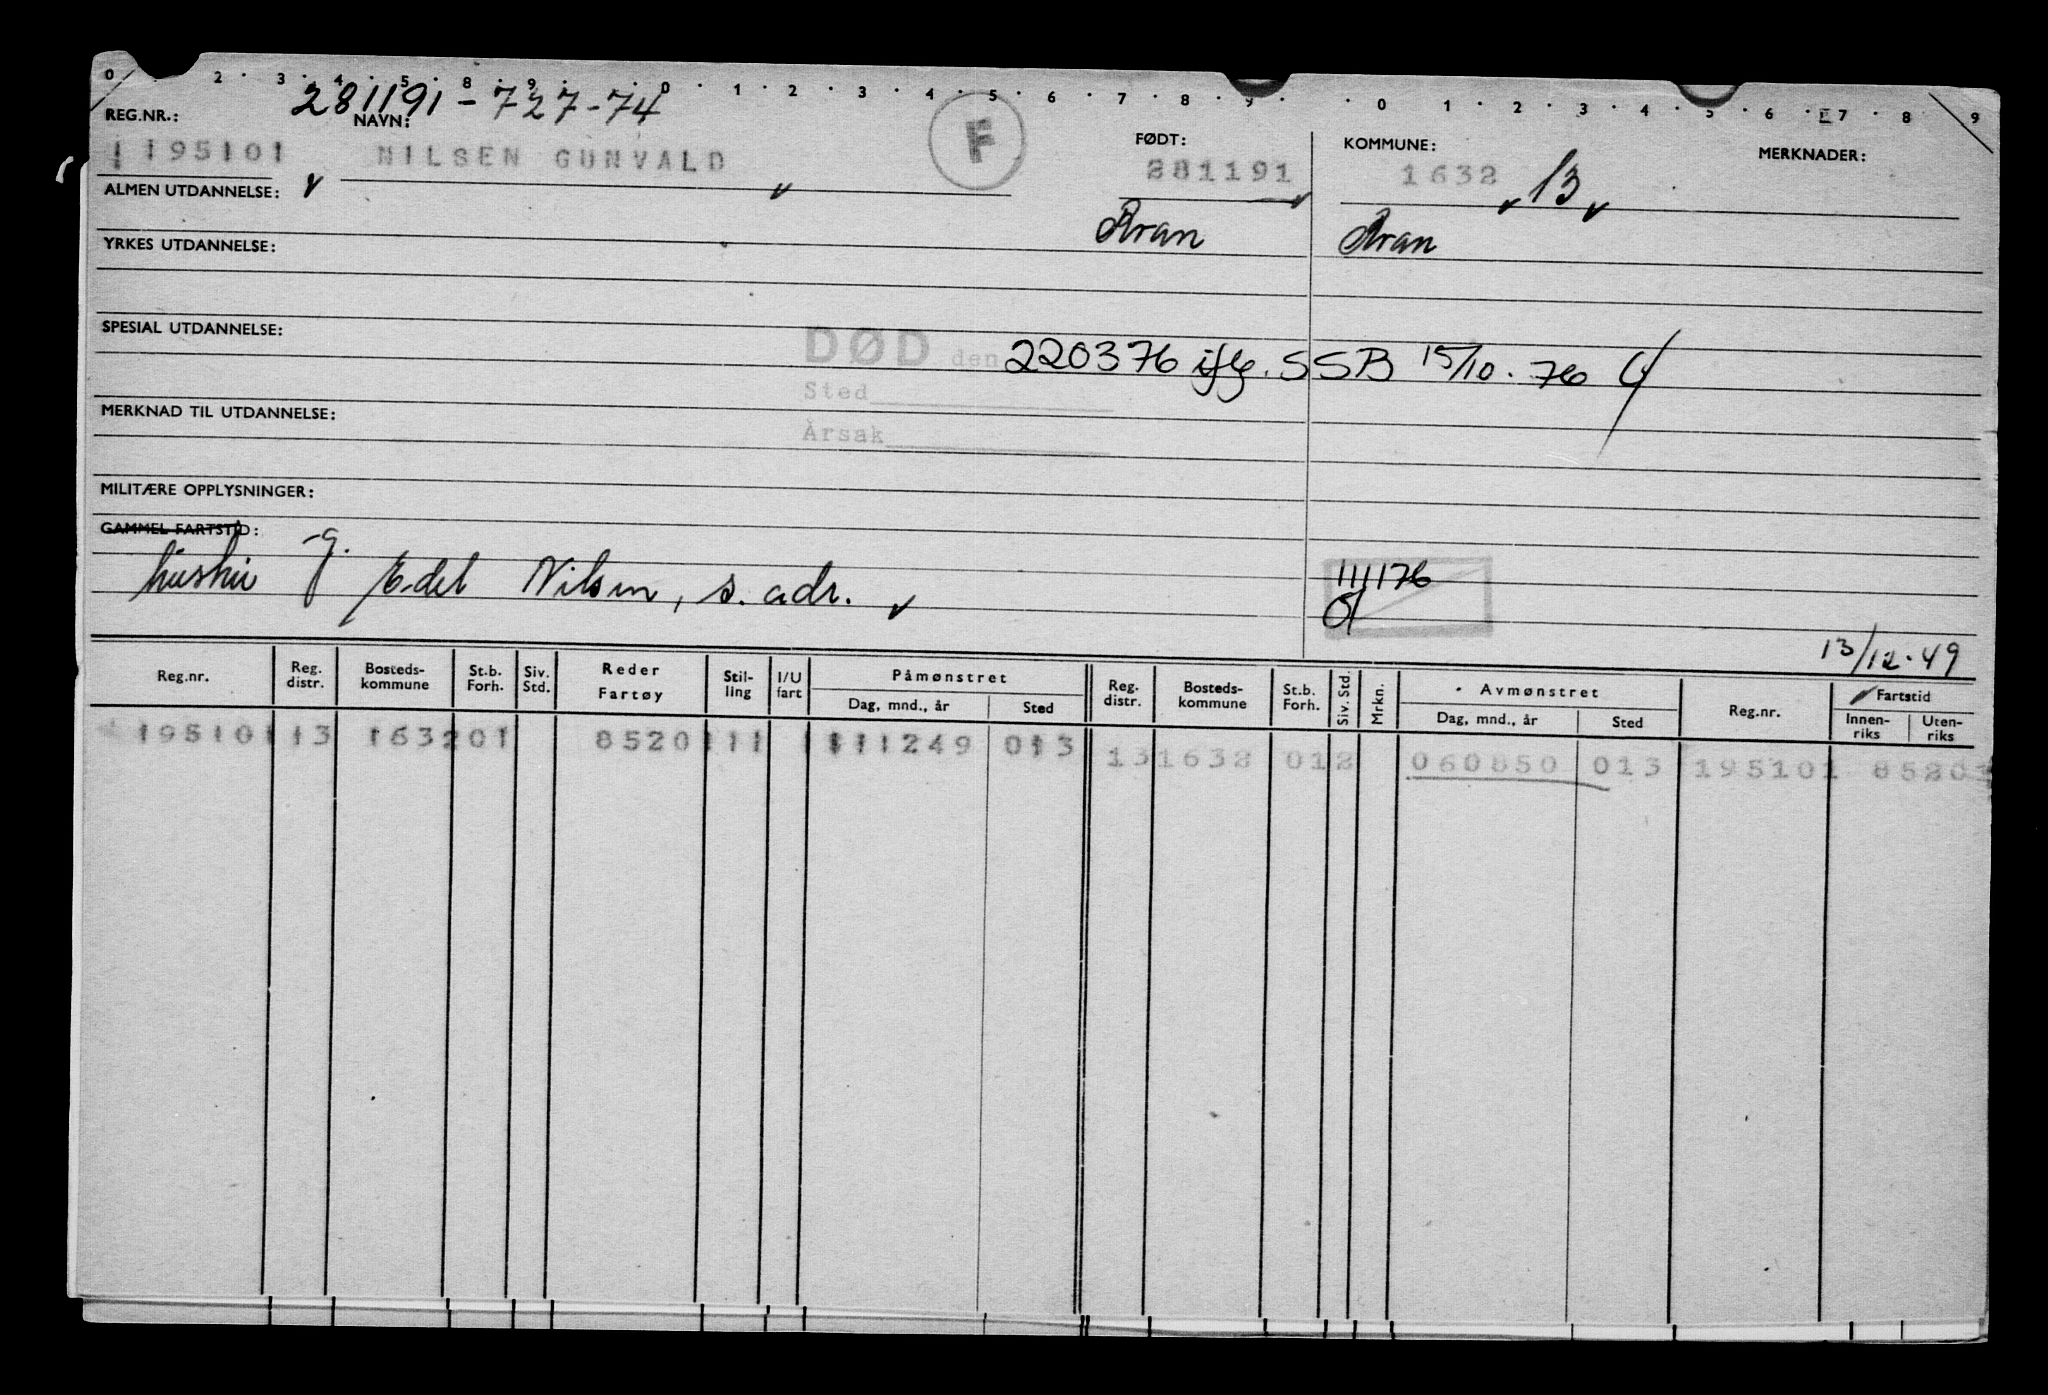 0 . 2 . 3 . 4 . 5 . 8 . 9 . 0 . 1 . 2 . 3 . 4 . 5 . 6 . 7 . 8 . 9 . . 0 . 1 . 2 . 3 . 4 . 5 . 6 . 7 . 8 . 9
281191-727-74
REG.NR.: NAVN: FØDT: KOMMUNE: MERKNADER:
195101 NILSEN GUNVALD F 281191 1632 13
ALMEN UTDANNELSE:
Aran Aran
YRKES UTDANNELSE:
SPESIAL UTDANNELSE:
DØD den 220376 iflg. SSB 15/10.76
Sted
MERKNAD TIL UTDANNELSE:
Årsak
MILITÆRE OPPLYSNINGER:
GAMMEL FARTSTID:
hustru -g. Edel Nilsen, s. adr.
111176
13/12.49
Reg.nr. Reg. distr. Bosteds-kommune St.b. Forh. Siv. Std. Reder Fartøy Stil-ling I/U fart Påmønstret Dag, mnd., år Sted Reg. distr. Bosteds-kommune St.b. Forh. Siv. Std. Mrkn. Avmønstret Dag, mnd., år Sted Reg.nr. Fartstid Innen-riks Uten-riks
195101 13 1632 01 8520 111 111249 013 13 1632 01 2 060850 013 195101 8520